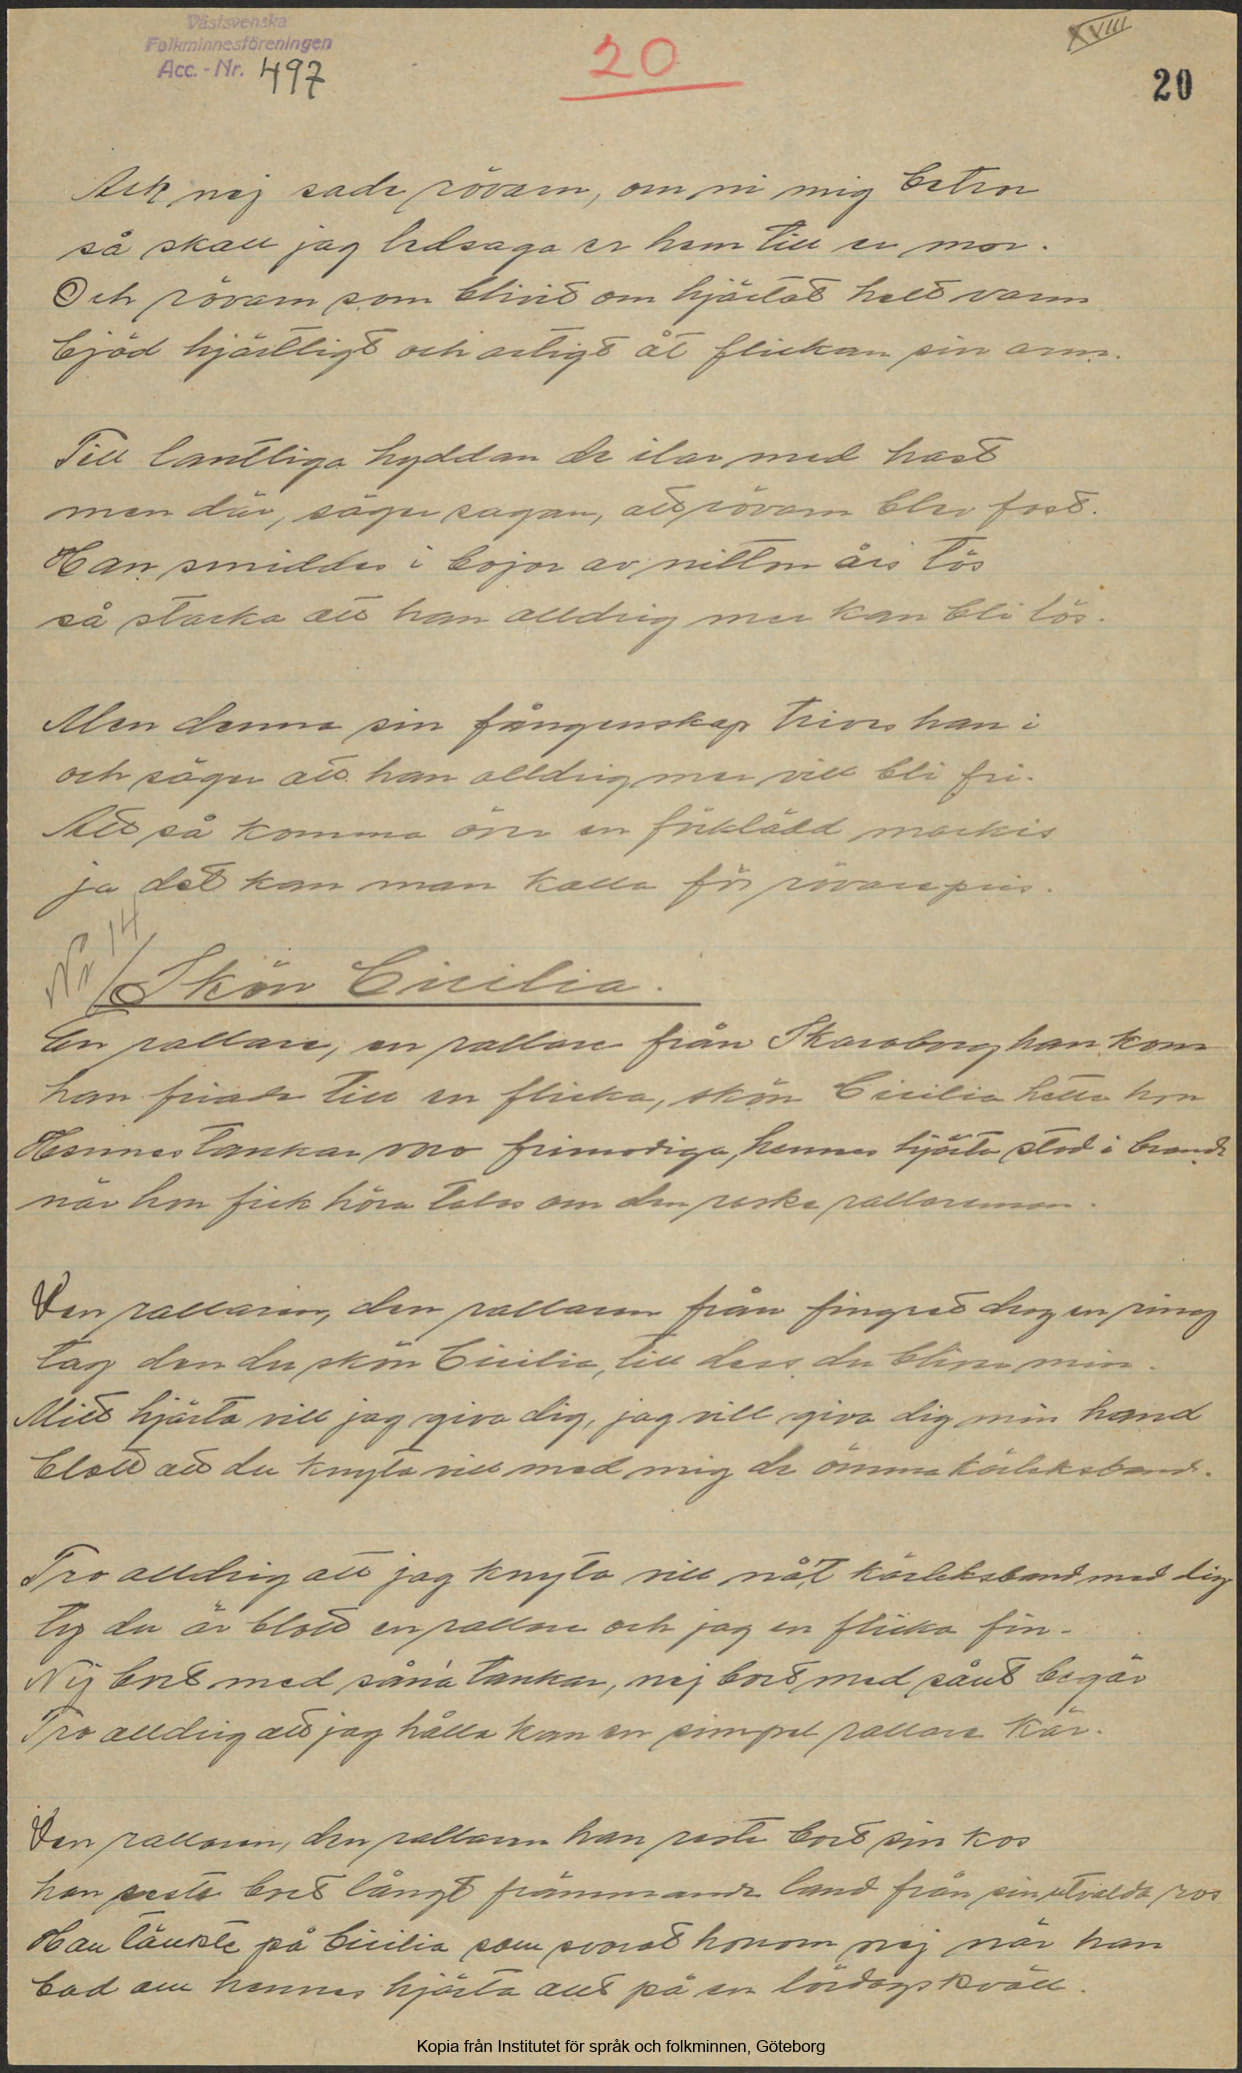 Västsvenska
Folkminnesföreningen
Acc.-Nr. 497
20
XVIII
20
Ack nej sade rövaren, om ni mig betror
så skall jag ledsaga er hem till er mor.
Och rövaren som blivit om hjärtat helt varm
bjöd hjärtligt och artigt åt flickan sin arm.
Till lantliga hyddan de ilar med hast
men där, säger sagan, att rövaren blev fast.
Han smiddes i bojor av nitton års tös
så starka att han alldrig mer kan bli lös.
Men denna sin fångenskap trives han i
och säger att han alldrig mer vill bli fri.
Att så komma över en förklädd markis
ja det kan man kalla för rövarepris.
Nr 14
Skön Cicilia.
En rallare, en rallare från Skaraborg han kom
han friade till en flicka, skön Cicilia hette hon
Hennes tankar voro frimodiga, hennes hjärta stod i brand
när hon fick höra talas om den raska rallareman.
Den rallaren, den rallaren från fingret drog en ring
tag den du skön Cicilia, till dess du bliver min.
Mitt hjärta vill jag giva dig, jag vill giva dig min hand
blott att du knyta vill med mig de ömma kärleksband.
Tro alldrig att jag knyta vill nå't kärleksband med dig
ty du är blott en rallare och jag en flicka fin.
Nej bort med såna tankar, nej bort med sånt begär
Tro alldrig att jag hålla kan en simpel rallare kär.
Den rallaren, den rallaren han reste bort sin kos
han reste bort långt främmande land från sin utvalda ros
Han tänkte på Cicilia som svarat honom nej när han
bad om hennes hjärta allt på en lördagskväll.
Kopia från Institutet för språk och folkminnen, Göteborg